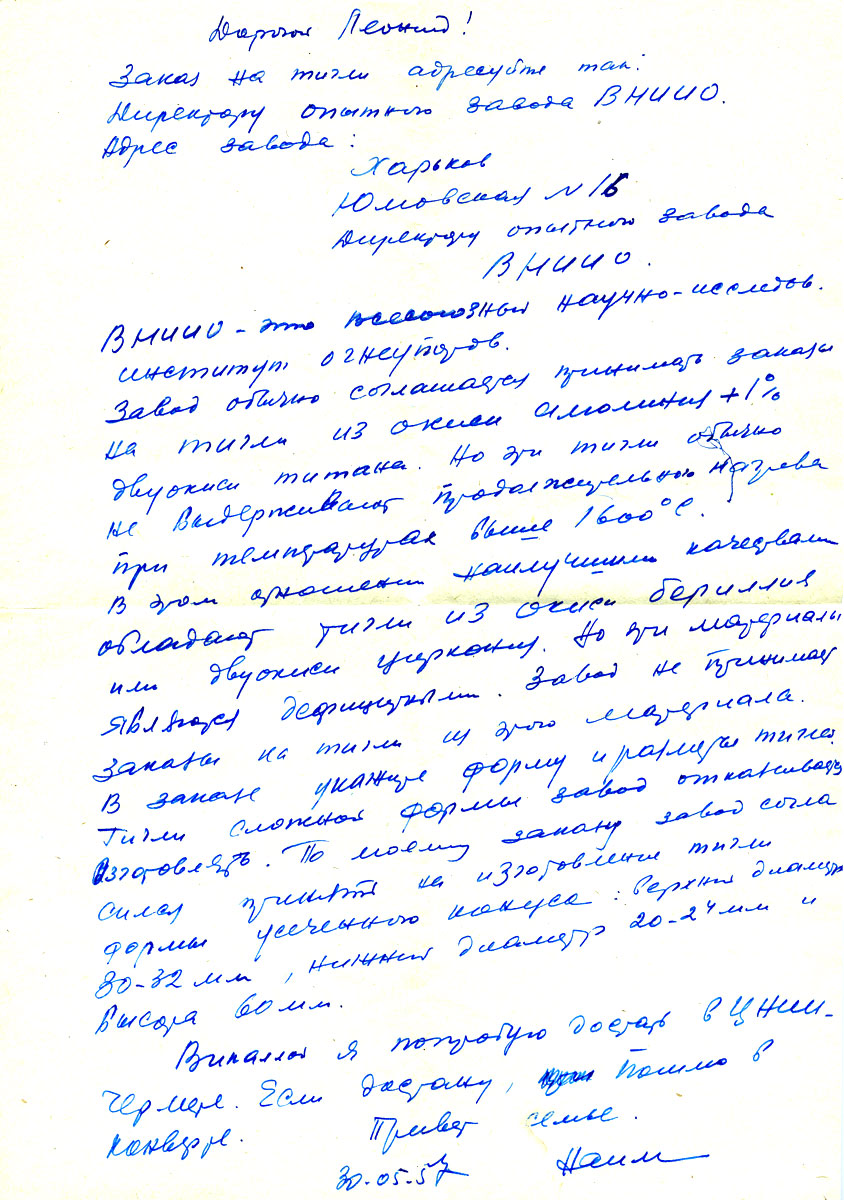 Дорогой Леонид!
Заказ на тигли адресуйте так:
Директору опытного завода ВНИИО.
Адрес завода:
Харьков
Юмовская N 16
Директору опытного завода
ВНИИО.
ВНИИО – это всесоюзный научно-исследов.
институт огнеупоров.
Завод обычно соглашается принимать заказы
на тигли из окиси алюминия + 1%
двуокиси титана. Но эти тигли обычно
не выдерживают продолжительного нагрева
при температурах выше 1600°С.
В этом отношении наилучшими качествами
обладают тигли из окиси бериллия
или двуокиси циркония. Но эти материалы
являются дефицитными. Завод не принимает
заказы на тигли из этого материала.
В заказе укажите форму и размеры тигля.
Тигли сложной формы завод отказывается
изготовлять. По моему заказу завод согла
сился принять на изготовление тигли
формы усеченного конуса: верхний диаметр
30-32 мм, нижний диаметр 20-24 мм и
высота 60 мм.
Виталлой я попробую достать в ЦНИИ-
Чермете. Если достану, пошлю в
конверте. Привет семье.
30-05-57 Наим